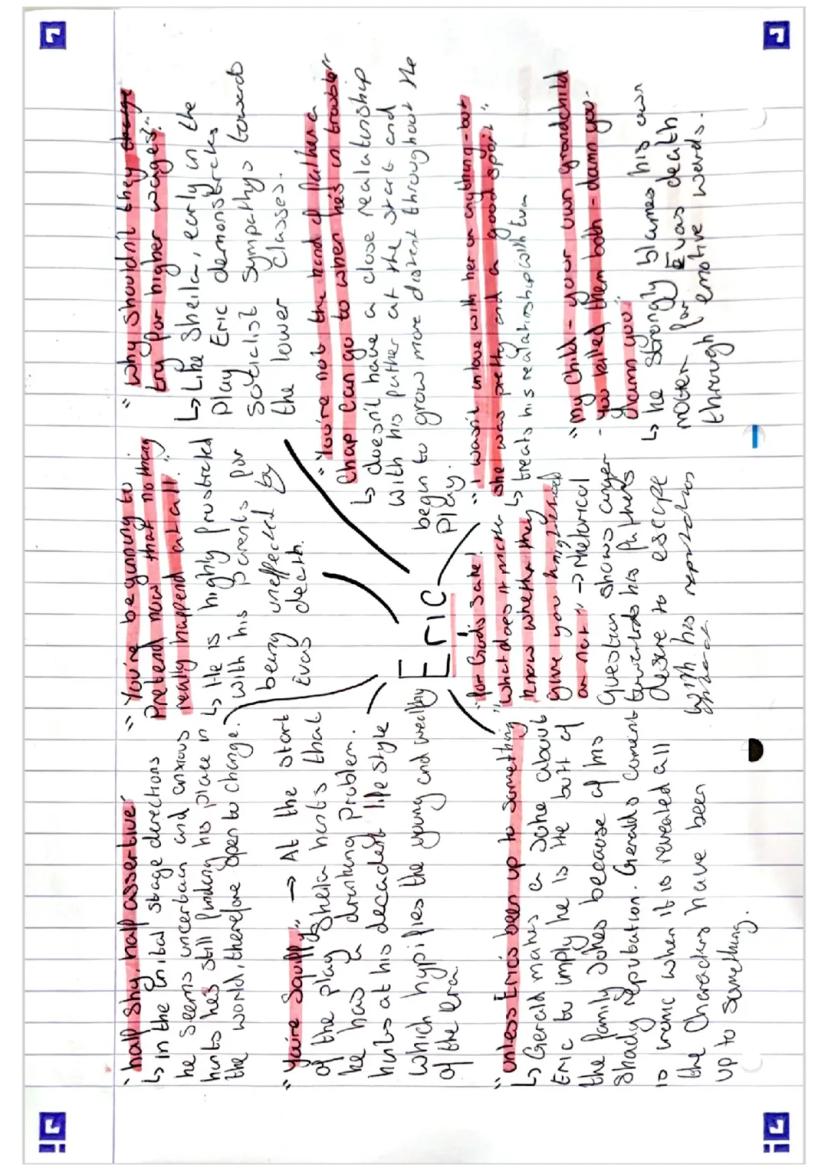 "half shy, half assertive"
↳ in the inital stage directions
he seems uncertain and anxious
hints he's still finding his place in
the world, therefore open to change.
"You're beginning to
Pretend now that nothing
really happend at all."
↳ He is highly frustrated
with his parents for
being uneffected by
Evas death.
"Why shouldn't they
try for higher wages?"
↳ Like Sheila, early in the
play Eric demonstrates
Socialist Sympathys towards
the lower classes.
"You're Squiffy" → At the start
of the play Sheila hints that
he has a drinking Problem.
hints at his decadent lifestyle
which typifies the young and wealthy
of the era.
Eric
"You're not the kind of father a
Chap can go to when he's in trouble"
↳ doesn't have a close realationship
with his father at the start and
begin to grow more distent throughout the
Play.
"unless Eric's been up to something"
↳ Gerald makes a Joke about
Eric to imply he is the butt of
the family Jokes because of his
Shady reputation. Geralds coment
is ironic when it is revealed all
the Characters have been
up to Something.
"for God's Sake!
what does it matter
know whether they
give you knighthood
or not" → rhetorical
Question shows anger
towards his fathers
desire to escape
with his reputation
"I wasn't in love with her or anything - but
She was pretty and a good sport".
↳ treats his realationship with Eva
"my Child - your own grandchild
- you killed them both - damn you -
damn you"
↳ he Strongly blames his own
mother for Evas death
through emotive words.